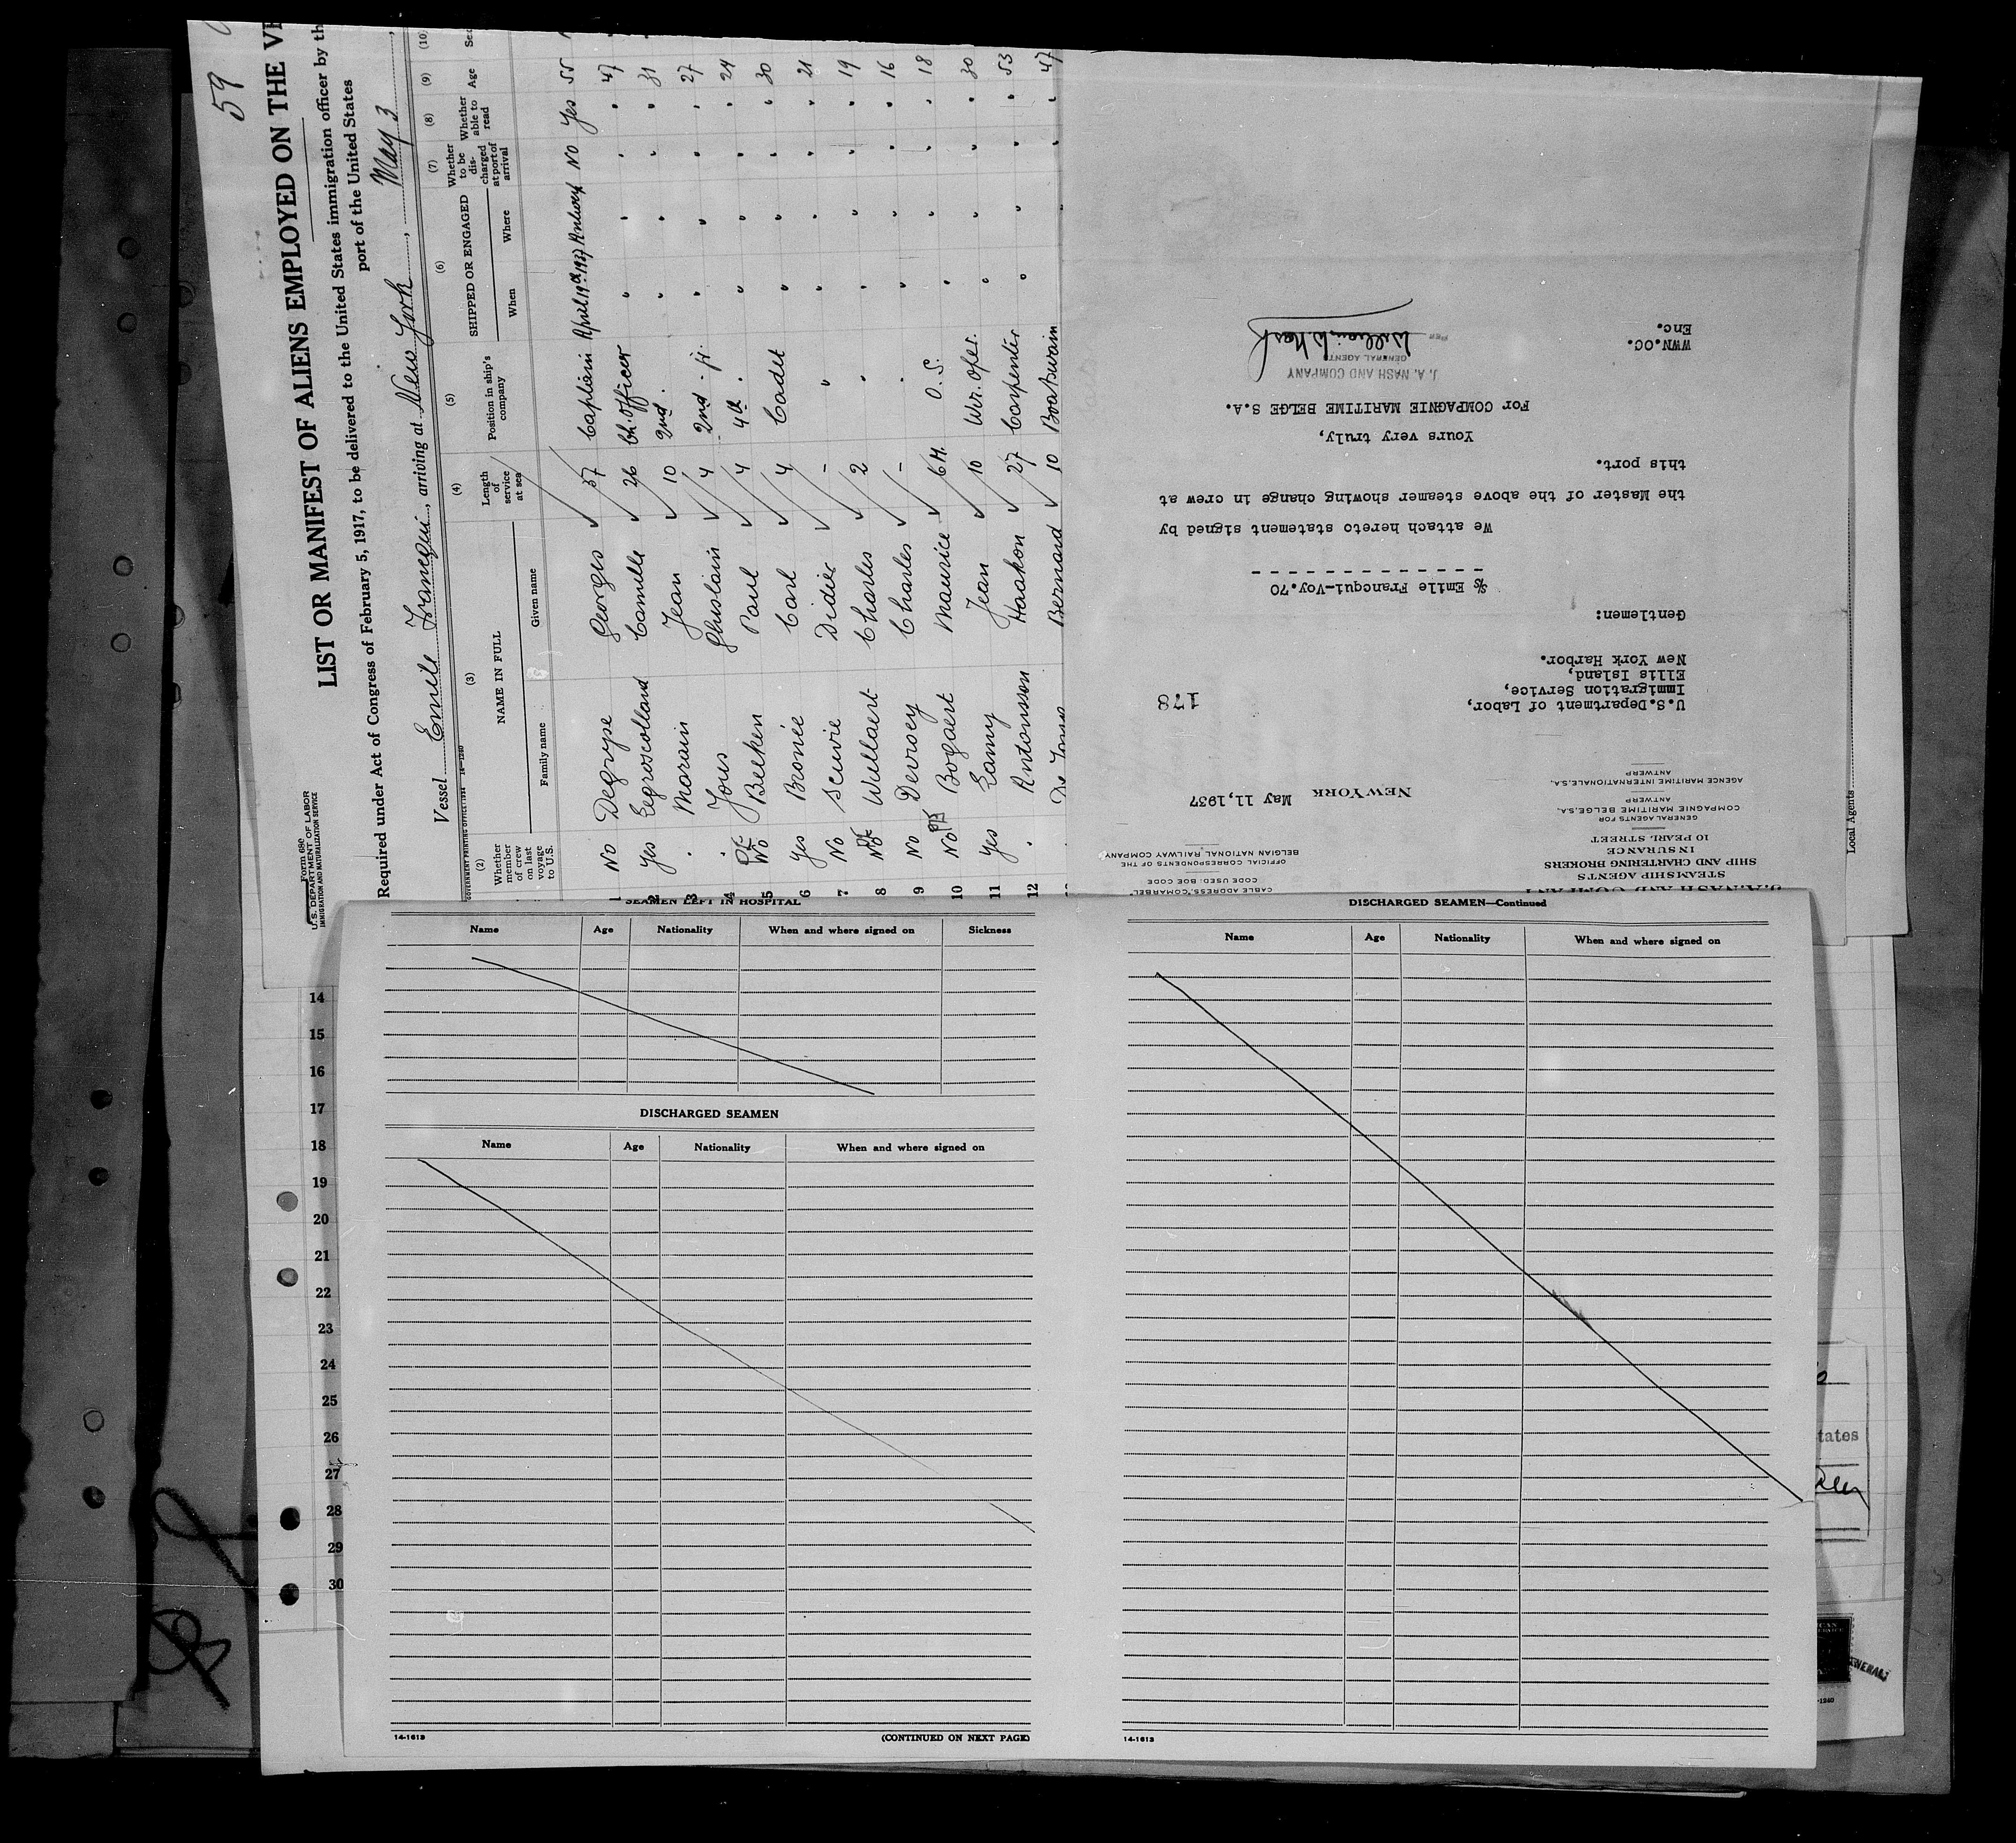 59
Form 680
U. S. DEPARTMENT OF LABOR
IMMIGRATION AND NATURALIZATION SERVICE
LIST OR MANIFEST OF ALIENS EMPLOYED ON THE VE
Required under Act of Congress of February 5, 1917, to be delivered to the United States immigration officer by th
port of the United States
Vessel Emile Francqui, arriving at New York, May 3,
GOVERNMENT PRINTING OFFICE 14-1240
(2) (3) (4) (5) (6) (7) (8) (9) (10)
Whether member of crew on last voyage to U.S.
NAME IN FULL
Family name Given name
Length of service at sea
Position in ship's company
SHIPPED OR ENGAGED
When Where
Whether to be discharged at port of arrival
Whether able to read
Age
1 No Degryse Georges 37 Captain April 19th 1937 Antwerp No Yes 55
2 Yes Camille 26 Ch. Officer " " " " 47
3 " Morain Jean 10 2nd " " " " " 31
4 " Jous Ghislain 4 2nd " " " " " 27
5 No Belken Paul 4 4th " " " " " 24
6 Yes Bronée Carl 4 Cadet " " " " 30
7 No Didier - " " " " " 21
8 No Wullaert Charles 2 " " " " " 19
9 No Devroey Charles - " " " " " 16
10 No Bogaert Maurice 6M. O.S. " " " " 18
11 Yes Lamy Jean 10 Wir. Oper. " " " " 30
12 " Antonsson Haakon 27 Carpenter " " " " 53
Bernard 10 Boatswain " " " 47
J.A. NASH AND COMPANY
STEAMSHIP AGENTS
SHIP AND CHARTERING BROKERS
INSURANCE
10 PEARL STREET
GENERAL AGENTS FOR
COMPAGNIE MARITIME BELGE, S.A.
ANTWERP
AGENCE MARITIME INTERNATIONALE, S.A.
ANTWERP
CABLE ADDRESS, "COMARBEL"
CODE USED: BOE CODE
OFFICIAL CORRESPONDENTS OF THE
BELGIAN NATIONAL RAILWAY COMPANY
NEW YORK May 11, 1937
U.S. Department of Labor,
Immigration Service,
Ellis Island,
New York Harbor.
178
Gentlemen:
S/S Emile Francqui-Voy.70
We attach hereto statement signed by
the Master of the above steamer showing change in crew at
this port.
Yours very truly,
For COMPAGNIE MARITIME BELGE S.A.
J. A. NASH AND COMPANY
GENERAL AGENT
PER William W. Nash
WWN.OC.
Enc.
Local Agents
SEAMEN LEFT IN HOSPITAL
Name Age Nationality When and where signed on Sickness
DISCHARGED SEAMEN
Name Age Nationality When and where signed on
14-1613
(CONTINUED ON NEXT PAGE)
DISCHARGED SEAMEN—Continued
Name Age Nationality When and where signed on
14-1613
14
15
16
17
18
19
20
21
22
23
24
25
26
27
28
29
30
tates
-1240